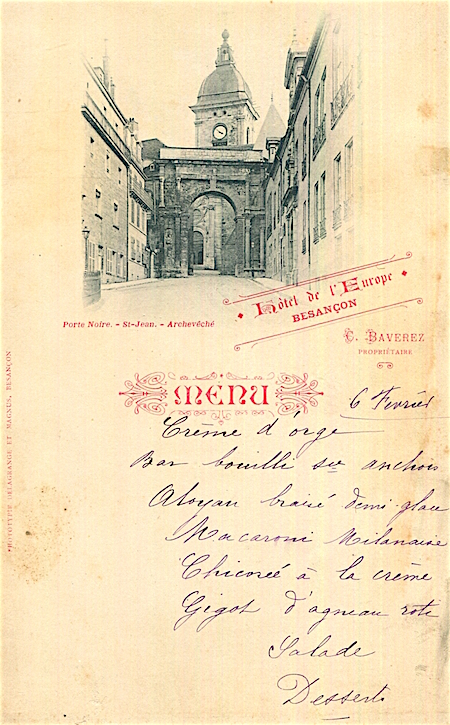 Porte Noire. - St-Jean. - Archevêché
Hôtel de l'Europe
BESANÇON
C. BAVEREZ
PROPRIÉTAIRE
PHOTOTYPIE DELAGRANGE ET MAGNUS, BESANÇON
MENU
6 Fevrier
Crème d'orge
Bar bouilli sce anchois
Aloyau braisé demi-glace
Macaroni Milanaise
Chicorée à la crème
Gigot d'agneau roti
Salade
Desserts